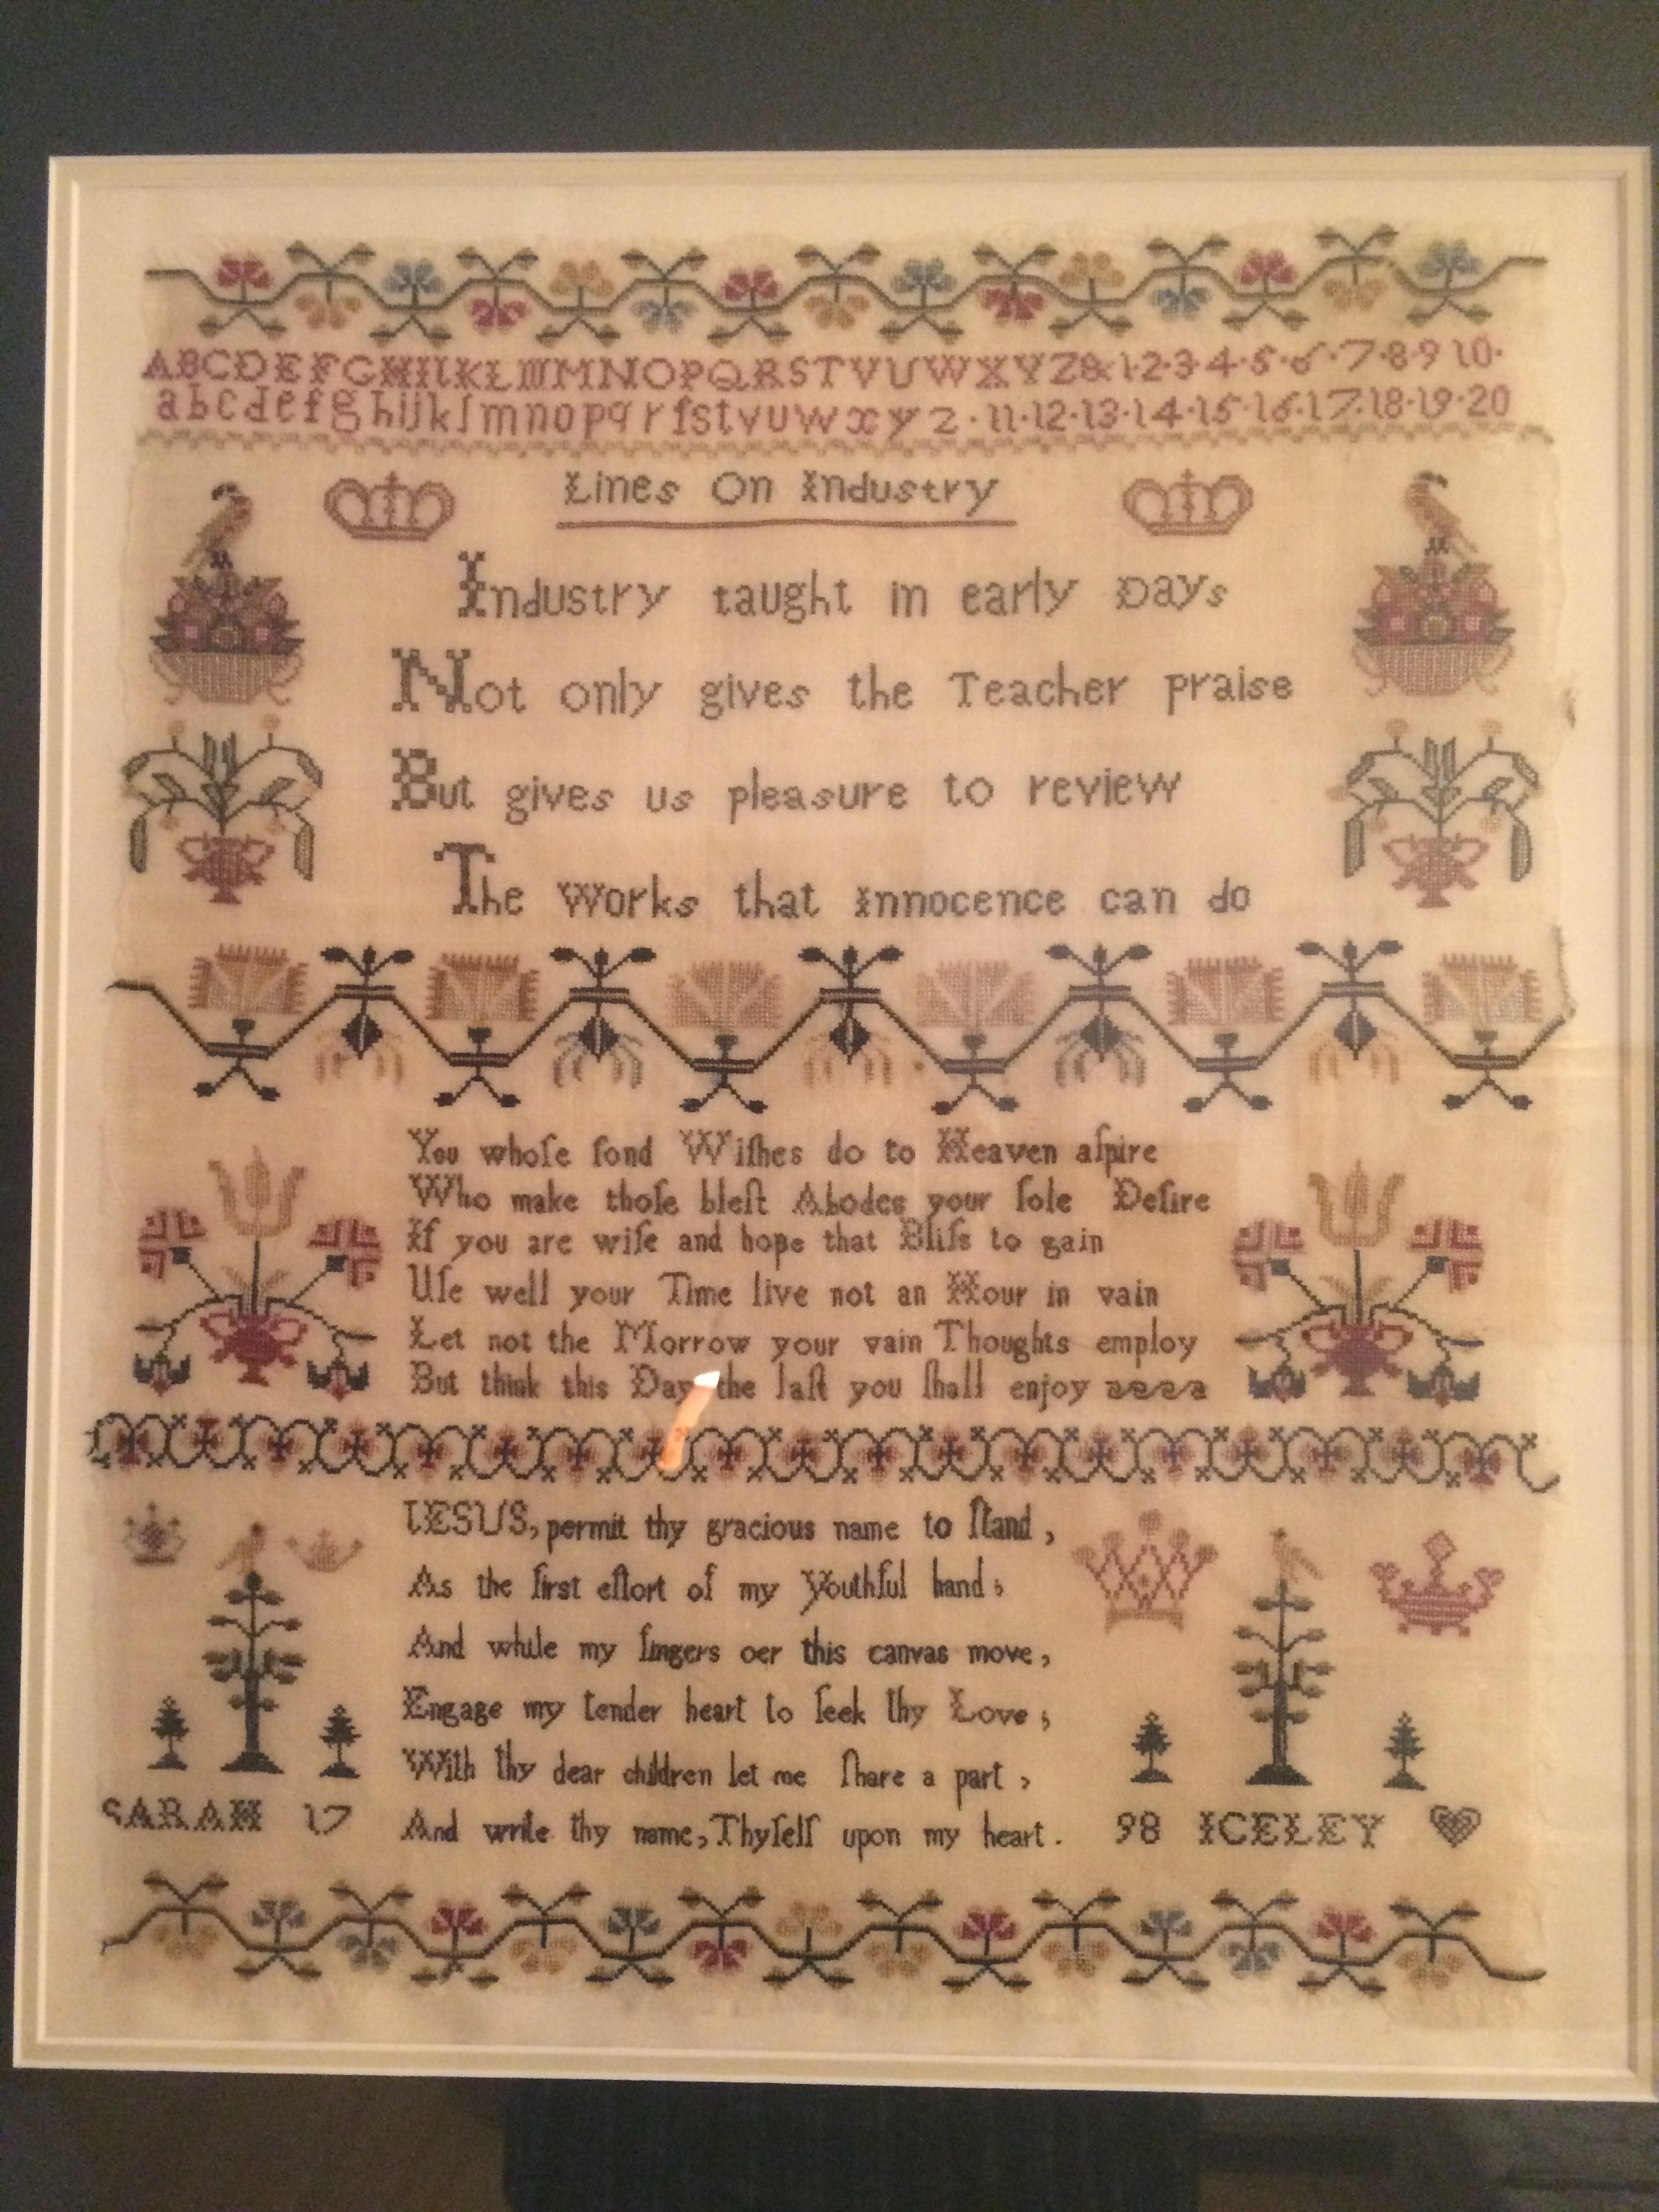 ABCDEFGHIJKLMNOPQRSTVUWXYZ&·1·2·3·4·5·6·7·8·9 10·
abcdefghijklmnopqrſstvuwxyz·11·12·13·14·15·16·17·18·19·20
Lines On Industry
Industry taught in early Days
Not only gives the Teacher praise
But gives us pleasure to review
The works that innocence can do
You whoſe fond Wiſhes do to Heaven aſpire
Who make thoſe bleſt Abodes your ſole Deſire
If you are wiſe and hope that Bliſs to gain
Uſe well your Time live not an Hour in vain
Let not the Morrow your vain Thoughts employ
But think this Day the laſt you ſhall enjoy
IESUS, permit thy gracious name to ſtand,
As the first effort of my Youthful hand;
And while my fingers oer this canvas move,
Engage my tender heart to ſeek thy Love;
With thy dear children let me ſhare a part,
SARAH 17 And write thy name, Thyſelf upon my heart. 98 ICELEY